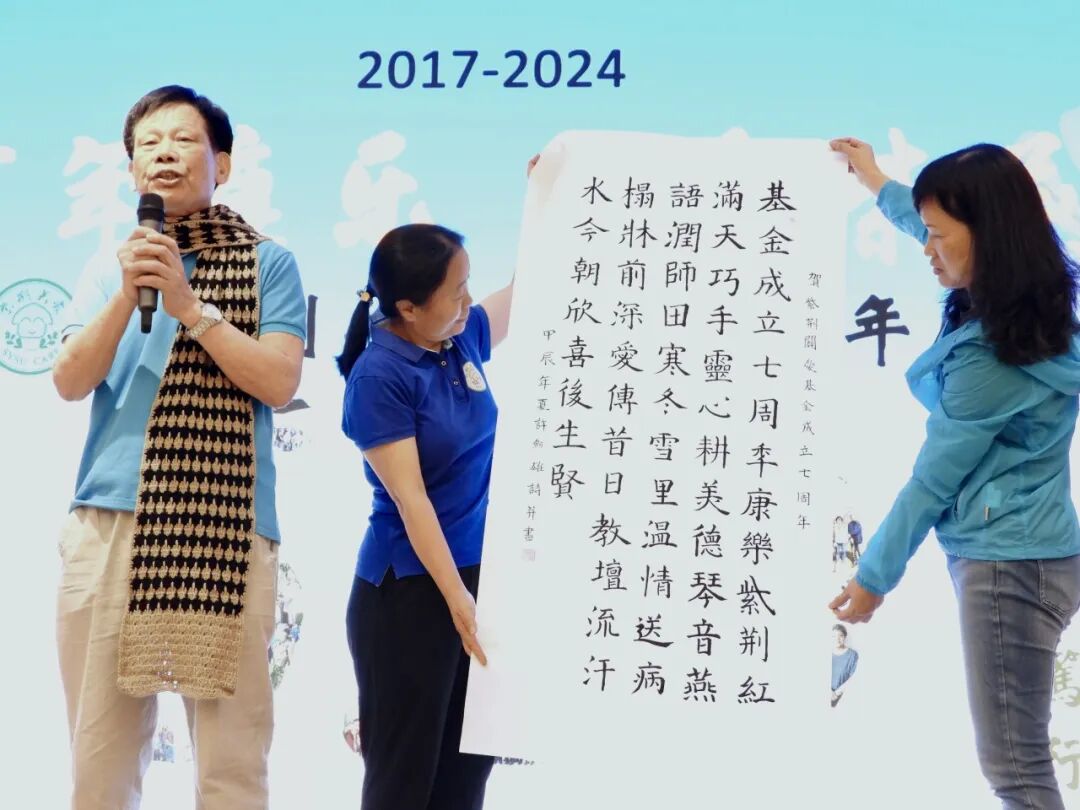 2017-2024
年 乐
年
SYSU CARE
賀紫荆關愛基金成立七周年
基金成立七周秊康樂紫荆紅
滿天巧手靈心耕美德琴音燕
語潤師田寒冬雪里温情送病
榻牀前深愛傳昔日教壇流汗
水今朝欣喜後生賢
甲辰年夏許雄詩并書
篤行